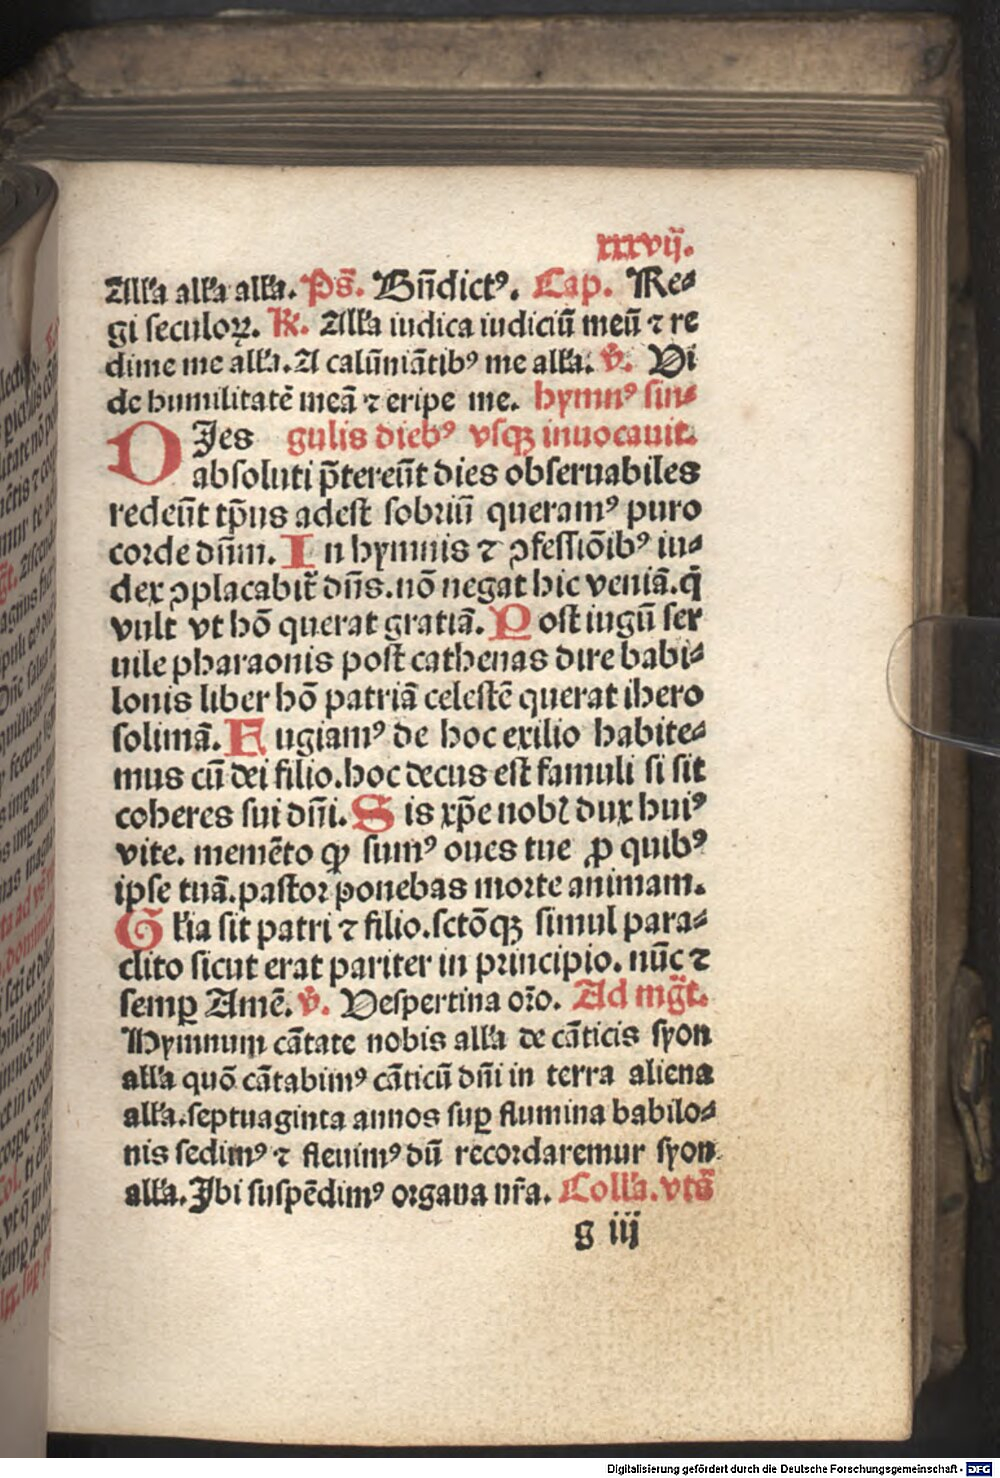 xxxvij.
Alla alla alla. Ps̄. Bn̄dictꝰ. Cap. Re⸗
gi seculoꝝ. ℟. Alla iudica iudiciū meū ⁊ re
dime me alla. A calūniātibꝰ me alla. v̄. Vi
de humilitatē meā ⁊ eripe me. hymnꝰ sin⸗
DIes gulis diebꝰ vsqꝫ inuocauit.
absoluti p̄tereūt dies obseruabiles
redeūt tp̄us adest sobriū queramꝰ puro
corde dn̄m. In hymnis ⁊ ꝯfessiōibꝰ iu⸗
dex ꝯplacabit̄ dn̄s. nō negat hic veniā. q̄
vult vt hō querat gratiā. Post iugū ser
uile pharaonis post cathenas dire babi⸗
lonis liber hō patriā celestē querat ihero
solimā. Fugiamꝰ de hoc exilio habite⸗
mus cū dei filio. hoc decus est famuli si sit
coheres sui dn̄i. Sis xp̄e nobꝭ dux huiꝰ
vite. memēto ꝙ sumꝰ oues tue ꝓ quibꝰ
ipse tuā. pastor ponebas morte animam.
Glia sit patri ⁊ filio. sctōqꝫ simul para⸗
clito sicut erat pariter in principio. nūc ⁊
semꝑ Amē. v̄. Vespertina or̄o. Ad mḡt.
Hymnum cātate nobis alla de cāticis syon
alla quō cātabimꝰ cāticū dn̄i in terra aliena
alla. septuaginta annos suꝑ flumina babilo⸗
nis sedimꝰ ⁊ fleuimꝰ dū recordaremur syon
alla. Ibi suspēdimꝰ organa nr̄a. Colla. vts̄
g iij
Digitalisierung gefördert durch die Deutsche Forschungsgemeinschaft - DFG